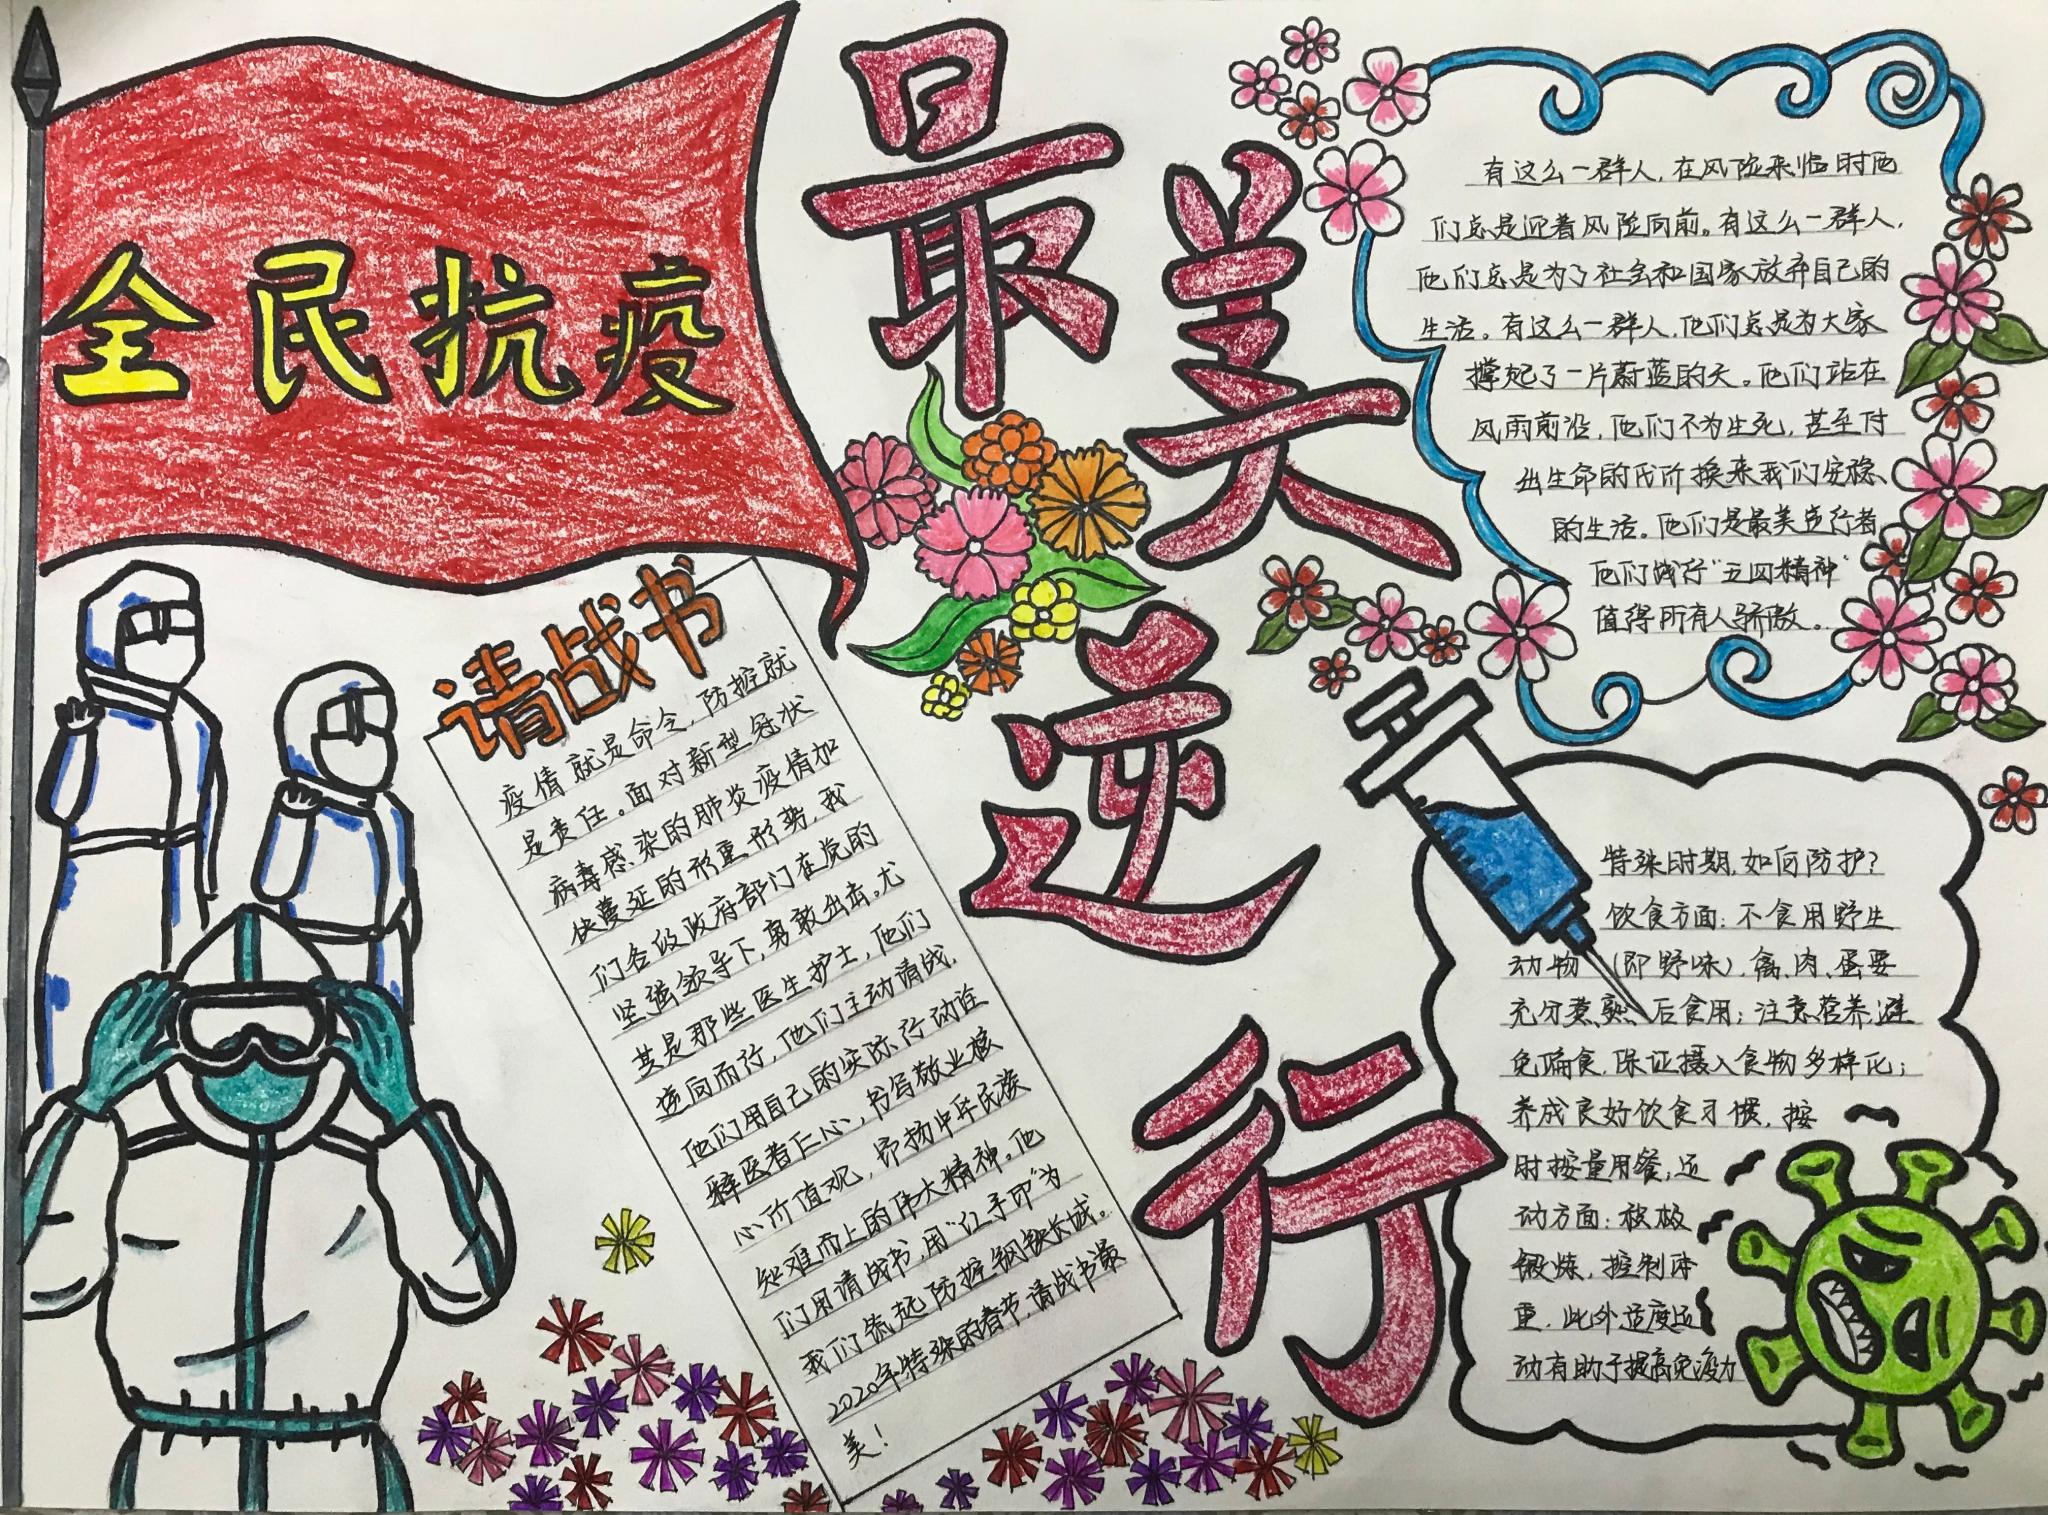 全民抗疫
最美逆行
有这么一群人,在风险来临时他
们总是迎着风险向前。有这么一群人,
他们总是为了社会和国家放弃自己的
生活。有这么一群人,他们总是为大家
撑起了一片蔚蓝的天。他们站在
风雨前沿,他们不为生死,甚至付
出生命的代价换来我们安稳、
的生活。他们是最美逆行者
他们践行“五四精神”
值得所有人骄傲。
请战书
疫情就是命令,防控就
是责任。面对新型冠状
病毒感染的肺炎疫情加
快蔓延的形重形势,我
们各级政府部门在党的
坚强领导下,勇敢出击。尤
其是那些医生护士,他们
逆向而行,他们主动请战,
他们用自己的实际行动诠
释医者仁心,书写敬业核
心价值观,昂扬中华民族
知难而上的伟大精神。他
们用请战书,用“红手印”为
我们筑起防控钢铁长城。
2020年特殊的春节,请战书最
美!
特殊时期,如何防护?
饮食方面:不食用野生
动物(即野味),禽、肉、蛋要
充分煮熟后食用;注意营养,避
免偏食,保证摄入食物多样化;
养成良好饮食习惯,按
时按量用餐;运
动方面:积极
锻炼,控制体
重,此外适度运
动有助于提高免疫力